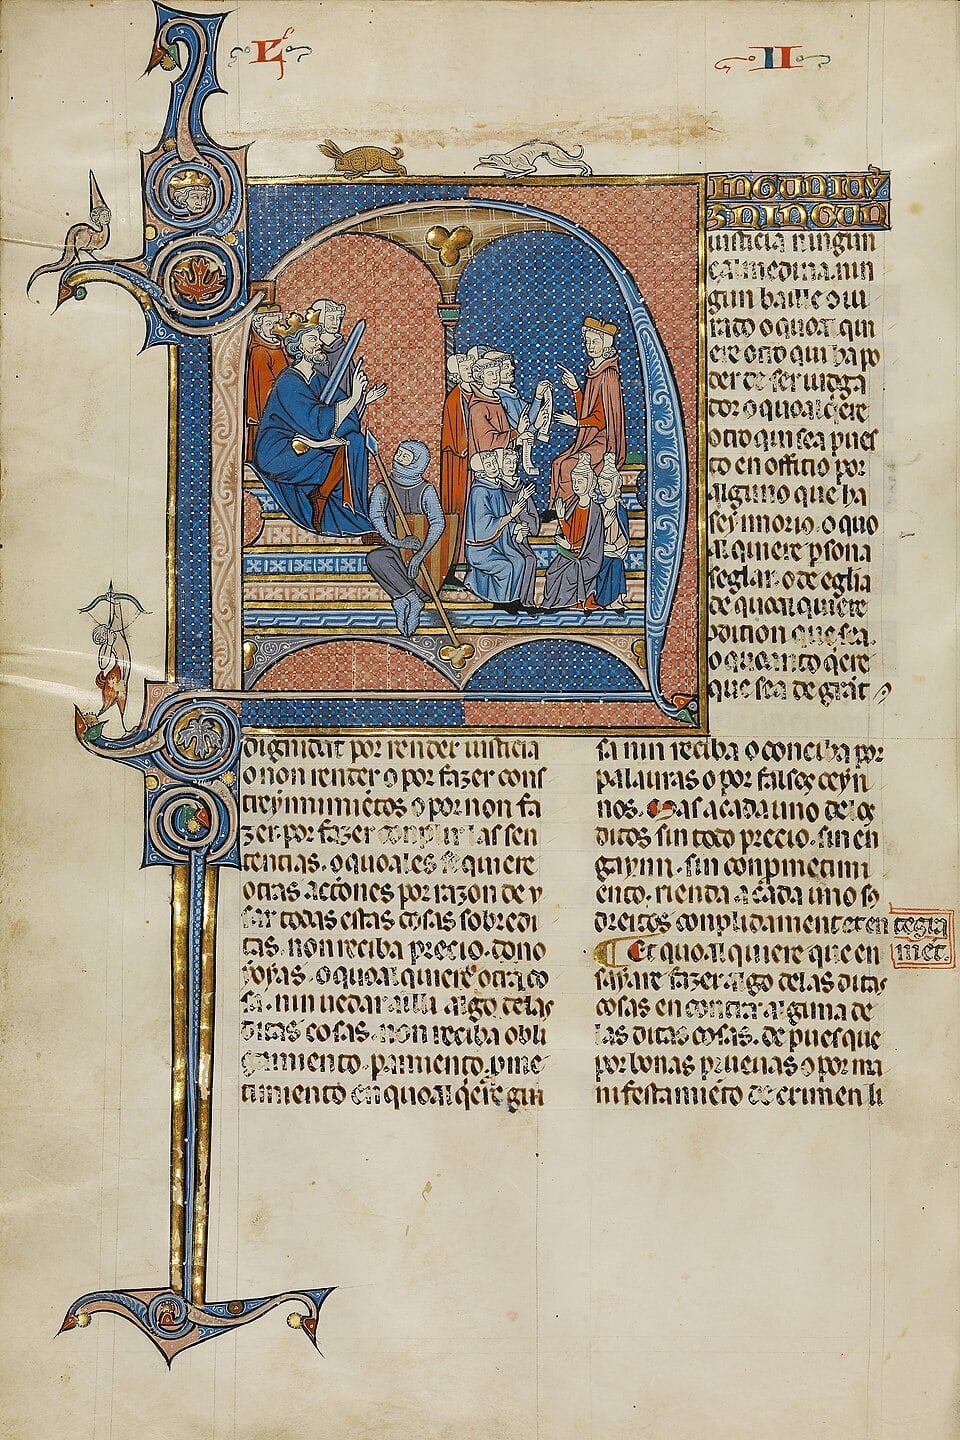 L II
NINGUN JUY
Z NINGUN
iusticia ningun
çalmedina. nin
gun baille o iu
rado o quoal qui
ere otro qui ha po
der de ser iudga
dor o quoalqere
otro qui sea pues
to en officio por
alguno que ha
seynnorio. o quo
al quiere psona
seglar. o de eglia
de quoal quiere
9dition que sea.
o quoanto qere
que sea de grāt
dignidat por render iusticia
o non render o por fazer cons
treynnimiētos o por non fa
zer. por fazer conplir las sen
tencias. o quoales se quiere
otras actiones por razon de y
sar todas estas cosas sobredi
tas. non reciba precio. dono
ioyas. o quoal quiere otra co
sa. nin uedar alli algo delas
ditas cosas. non reciba obli
gamiento. pamiento. pme
timiento en quoal qere gui
sa nin reciba o conciba por
palauras o por falsos ceyn
nos. Mas a cada uno de los
ditos sin todo precio. sin en
gaynn. sin conpmetimi
ento. rienda a cada uno sos
dreitos conplidament et en tegra
mēt.
¶ Et quoal quiere que en
sayare fazer algo delas ditas
cosas en contra alguna de
las ditas cosas. de pues que
por bonas prueuas o por ma
nifestamiēto de crimen li